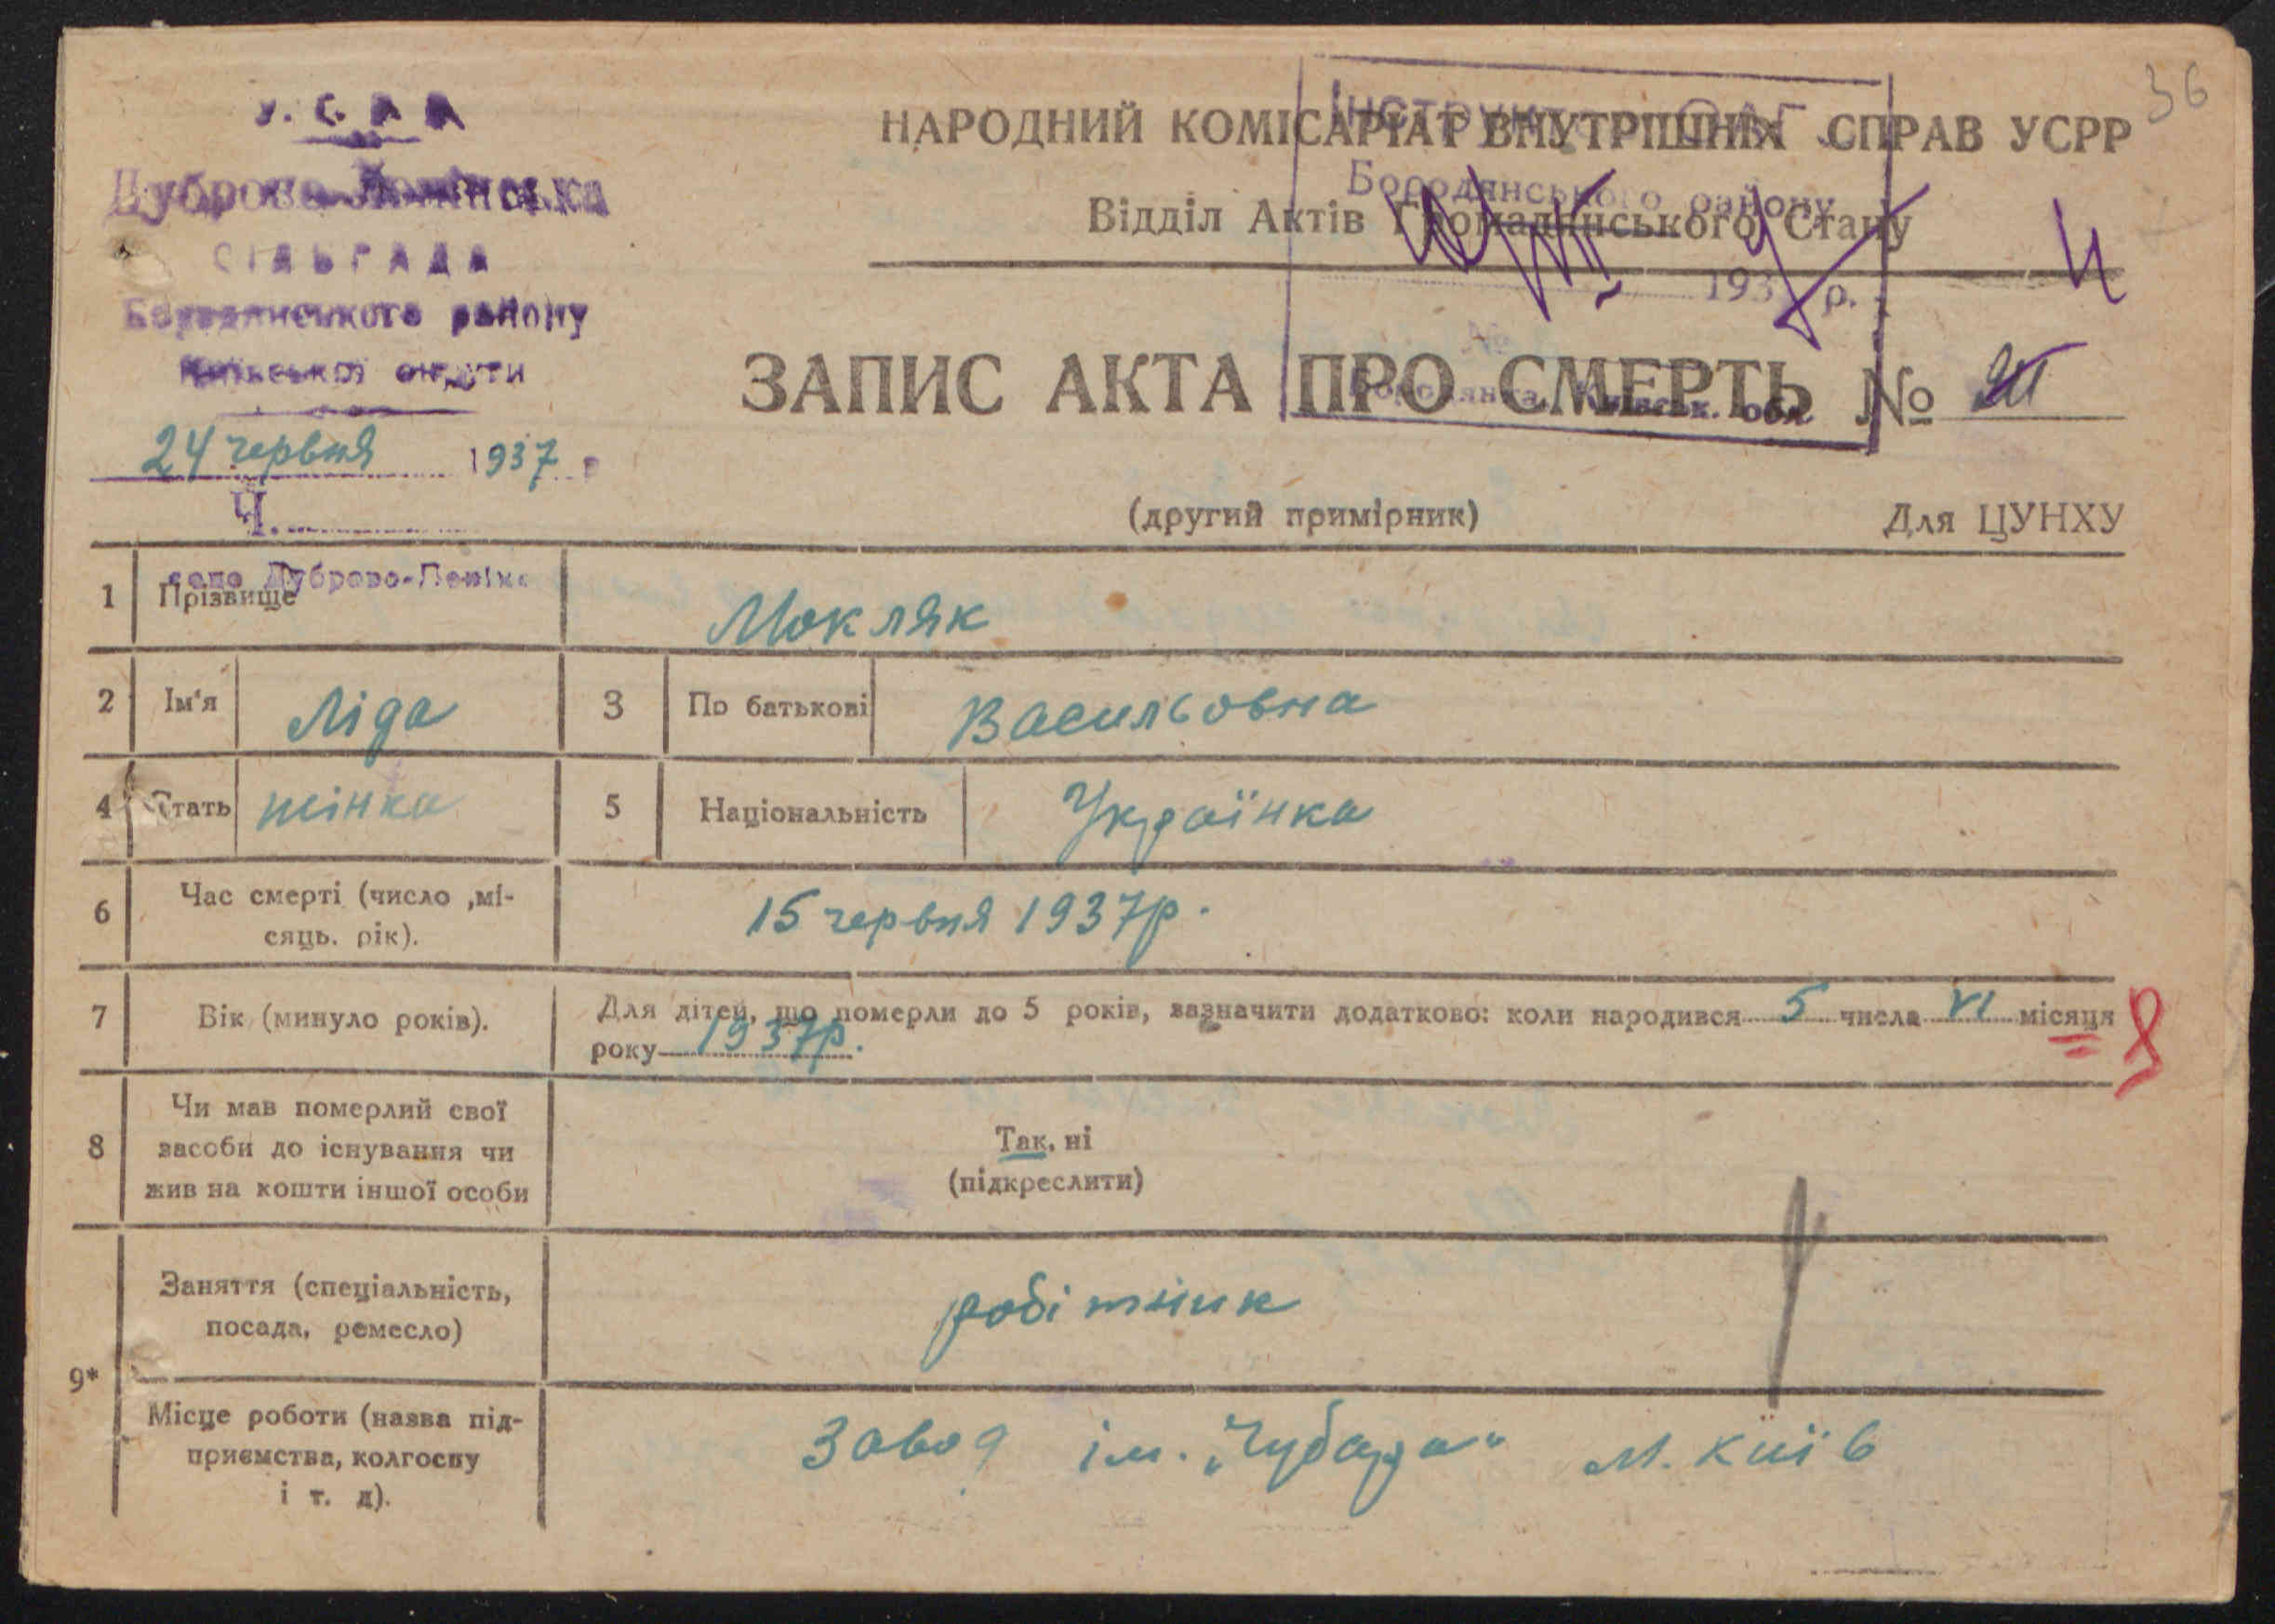 36
У.С.Р.Р.
Дуброво-Ленінська
СІЛЬРАДА
Бородянського району
Київської округи
24 червня 1937 р
Ч.
НАРОДНИЙ КОМІСАРІАТ ВНУТРІШНІХ СПРАВ УСРР
Відділ Актів Громадянського Стану
Бородянського району
193 р.
ЗАПИС АКТА ПРО СМЕРТЬ №
Бородянка, Київськ. обл.
(другий примірник) Для ЦУНХУ
село Дуброво-Леніно
1 Прізвище Мокляк
2 Ім'я Ліда 3 По батькові Васильовна
4 Стать жінка 5 Національність Українка
6 Час смерті (число ,мі-
сяць. рік). 15 червня 1937р.
7 Вік (минуло років). Для дітей, що померли до 5 років, зазначити додатково: коли народився 5 числа VI місяця
року 1937р.
8 Чи мав померлий свої
засоби до існування чи
жив на кошти іншої особи
Так, ні
(підкреслити)
9* Заняття (спеціальність,
посада, ремесло) робітник
Місце роботи (назва під-
приємства, колгоспу
і т. д). Завод ім. „Чубаря" м. Київ